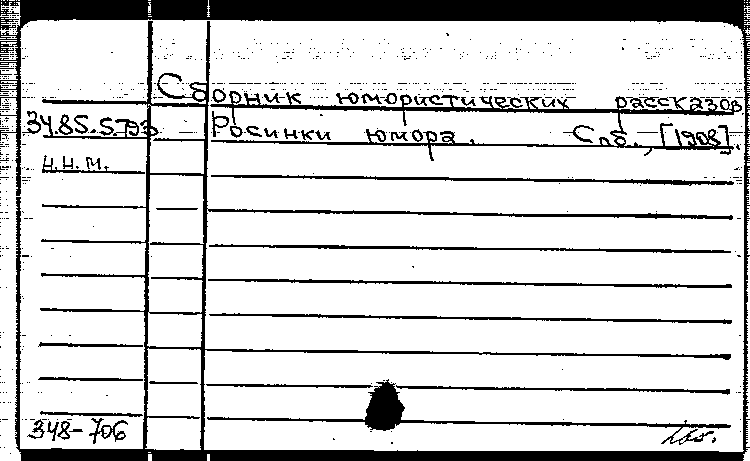 Сборник юмористических рассказов
34.85.5.793 Росинки юмора. Спб., [1908].
Н.Н.М.
348-706